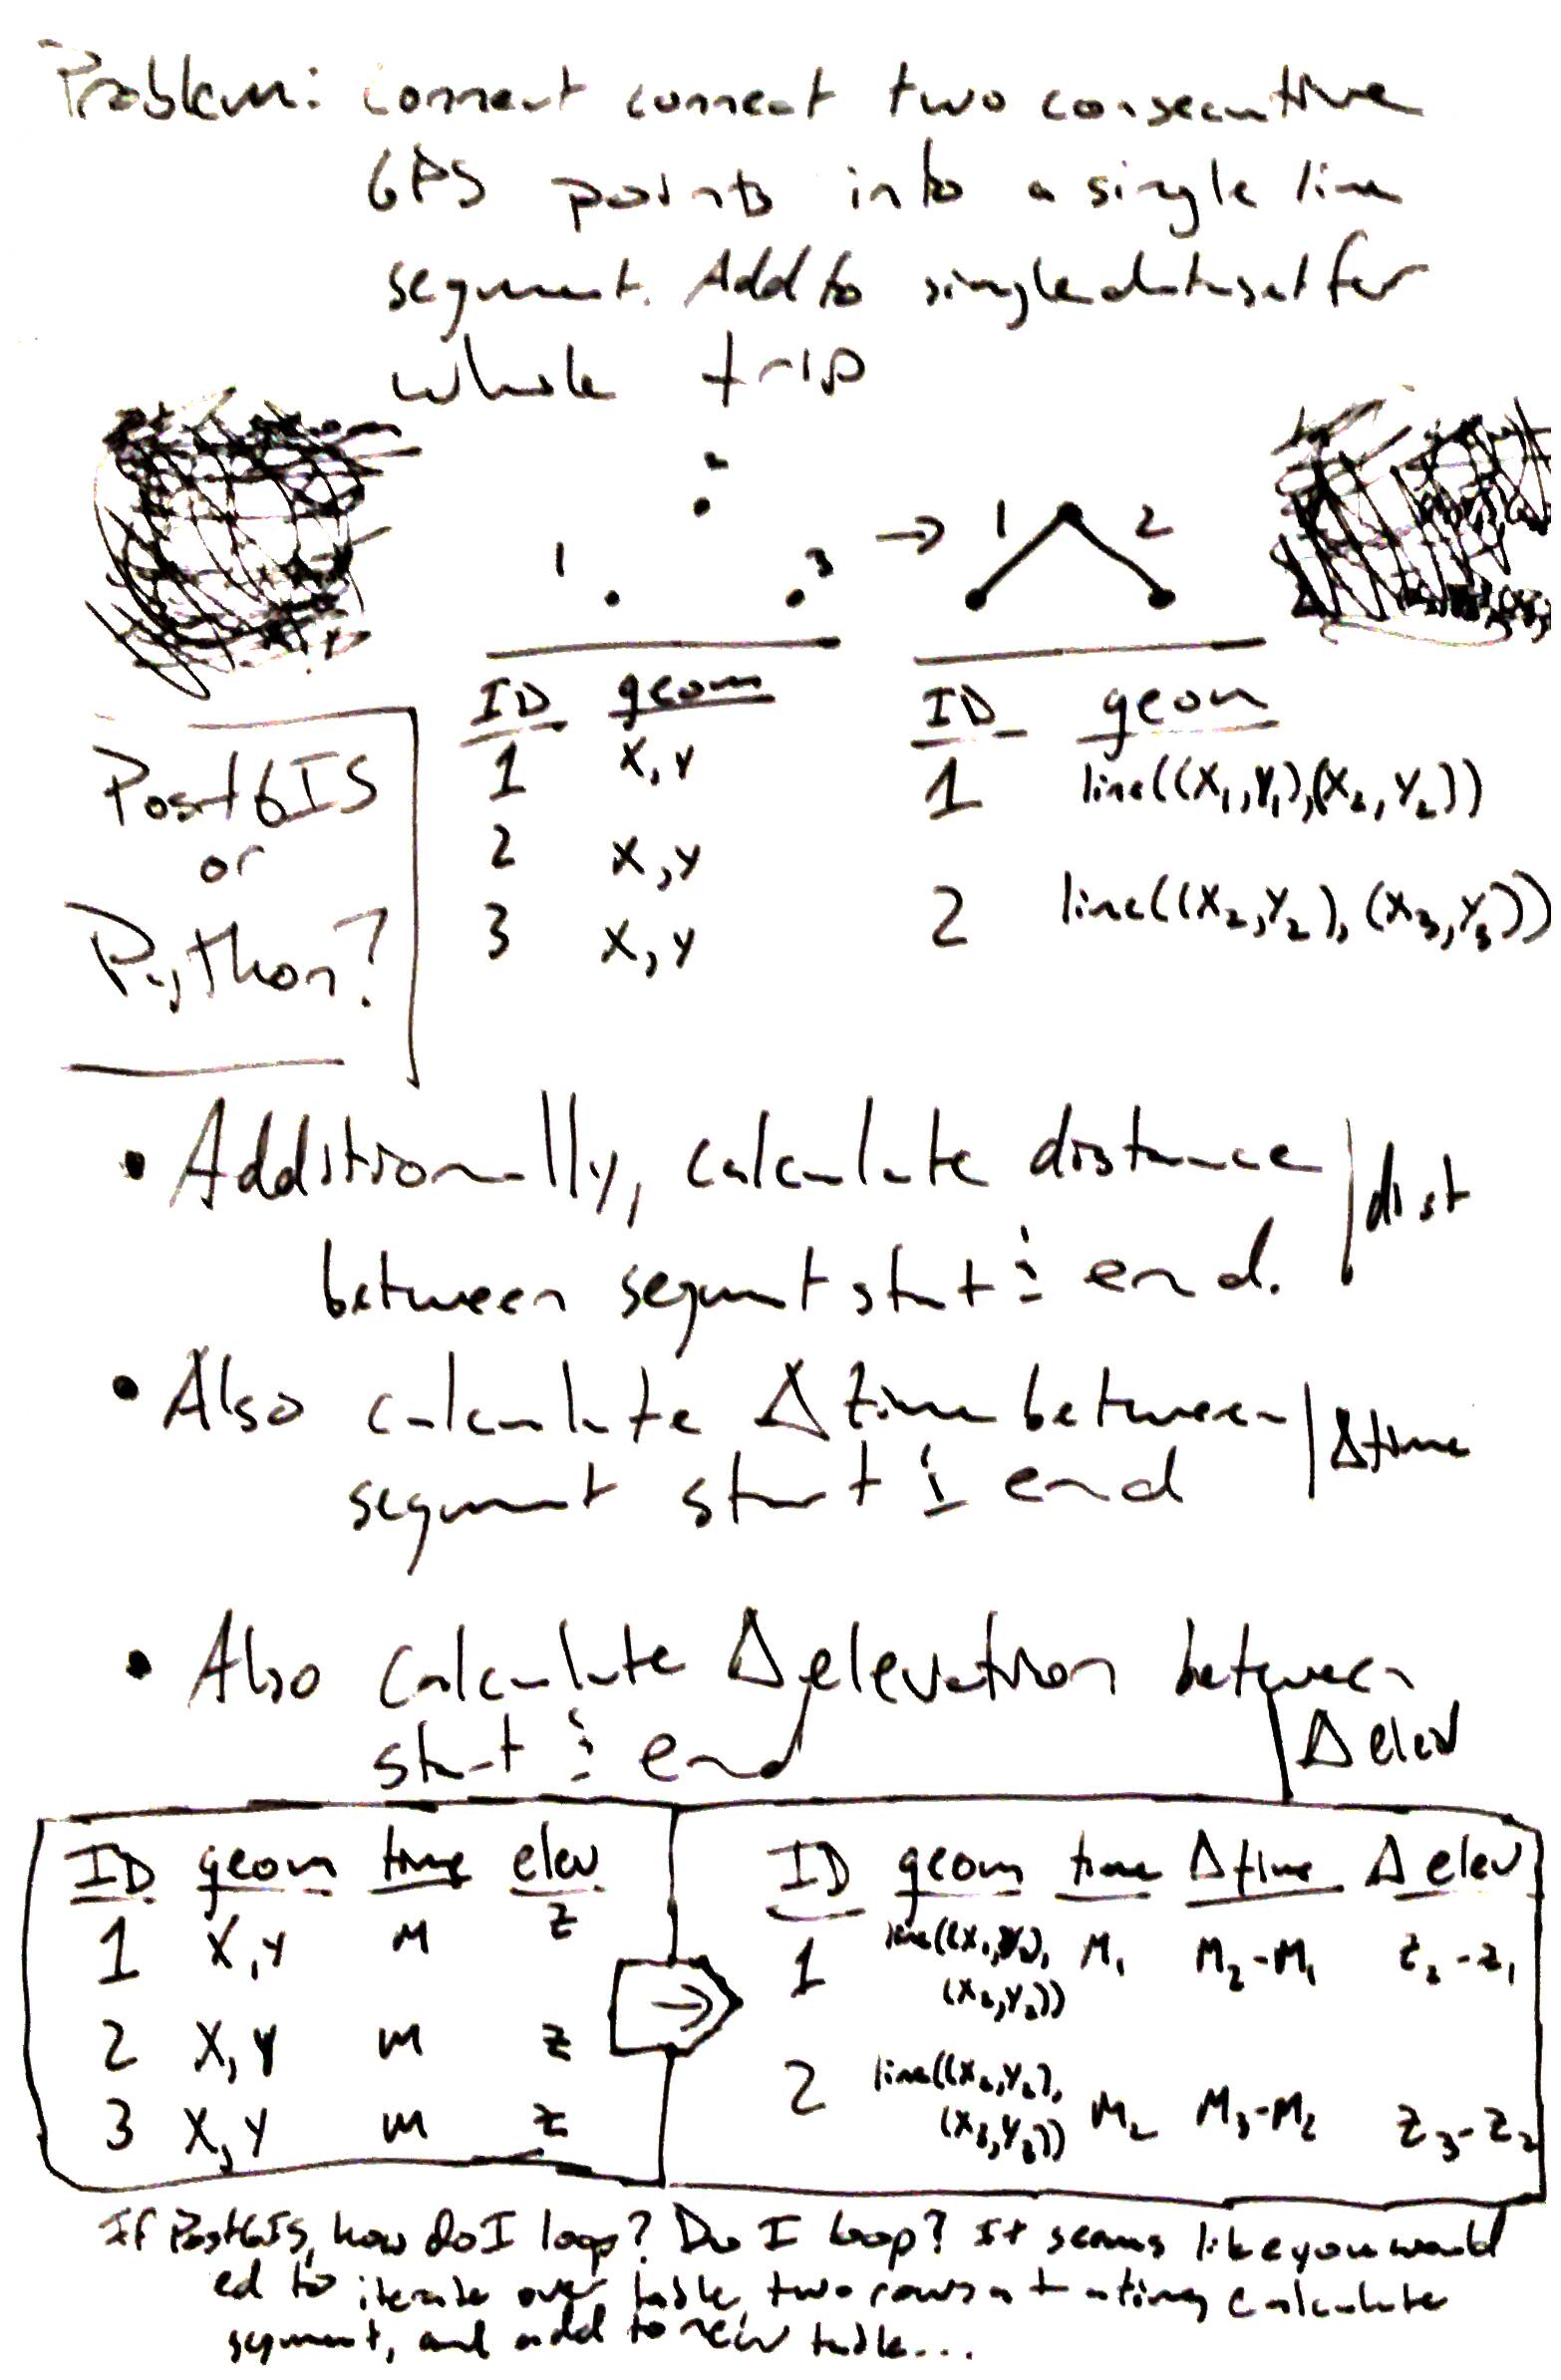 Problem: connect connect two consecutive
GPS points into a single line
segment. Add to single dataset for
whole trip
2
1 3 → 1 2
PostGIS
or
Python?
ID geom
1 X,Y
2 X,Y
3 X,Y
ID geom
1 line((X1,Y1),(X2,Y2))
2 line((X2,Y2),(X3,Y3))
• Additionally, calculate distance | dist
between segment start & end.
• Also calculate Δ time between | Δtime
segment start & end
• Also calculate Δ elevation between
start & end | Δ elev
ID geom time elev
1 X,Y M Z
2 X,Y M Z
3 X,Y M Z
→
ID geom time Δ time Δ elev
1 line((X1,Y1), M1 M2-M1 Z2-Z1
(X2,Y2))
2 line((X2,Y2), M2 M3-M2 Z3-Z2
(X3,Y3))
If PostGIS, how do I loop? Do I loop? It seems like you would
ed to iterate over table, two rows at a time, calculate
segment, and add to new table...